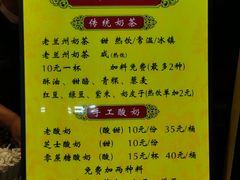 传统奶茶
老兰州奶茶 甜 热饮/常温/冰镇
老兰州奶茶 咸(热饮)
10元一杯 加料免费(最多2种)
酥油、甜醅、青稞、燕麦
红豆、绿豆、紫米、奶皮子(热饮单加2元)
手工酸奶
老酸奶 (酸甜) 10元/份 35元/桶
芝士酸奶 (甜) 10元/份
零蔗糖酸奶 (酸) 15元/杯 40元/桶
免费加两种料